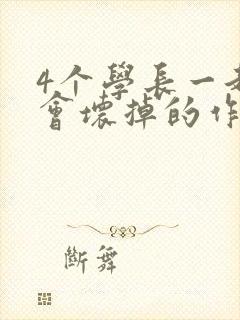 4个學長一
會壞掉的作
斷舞